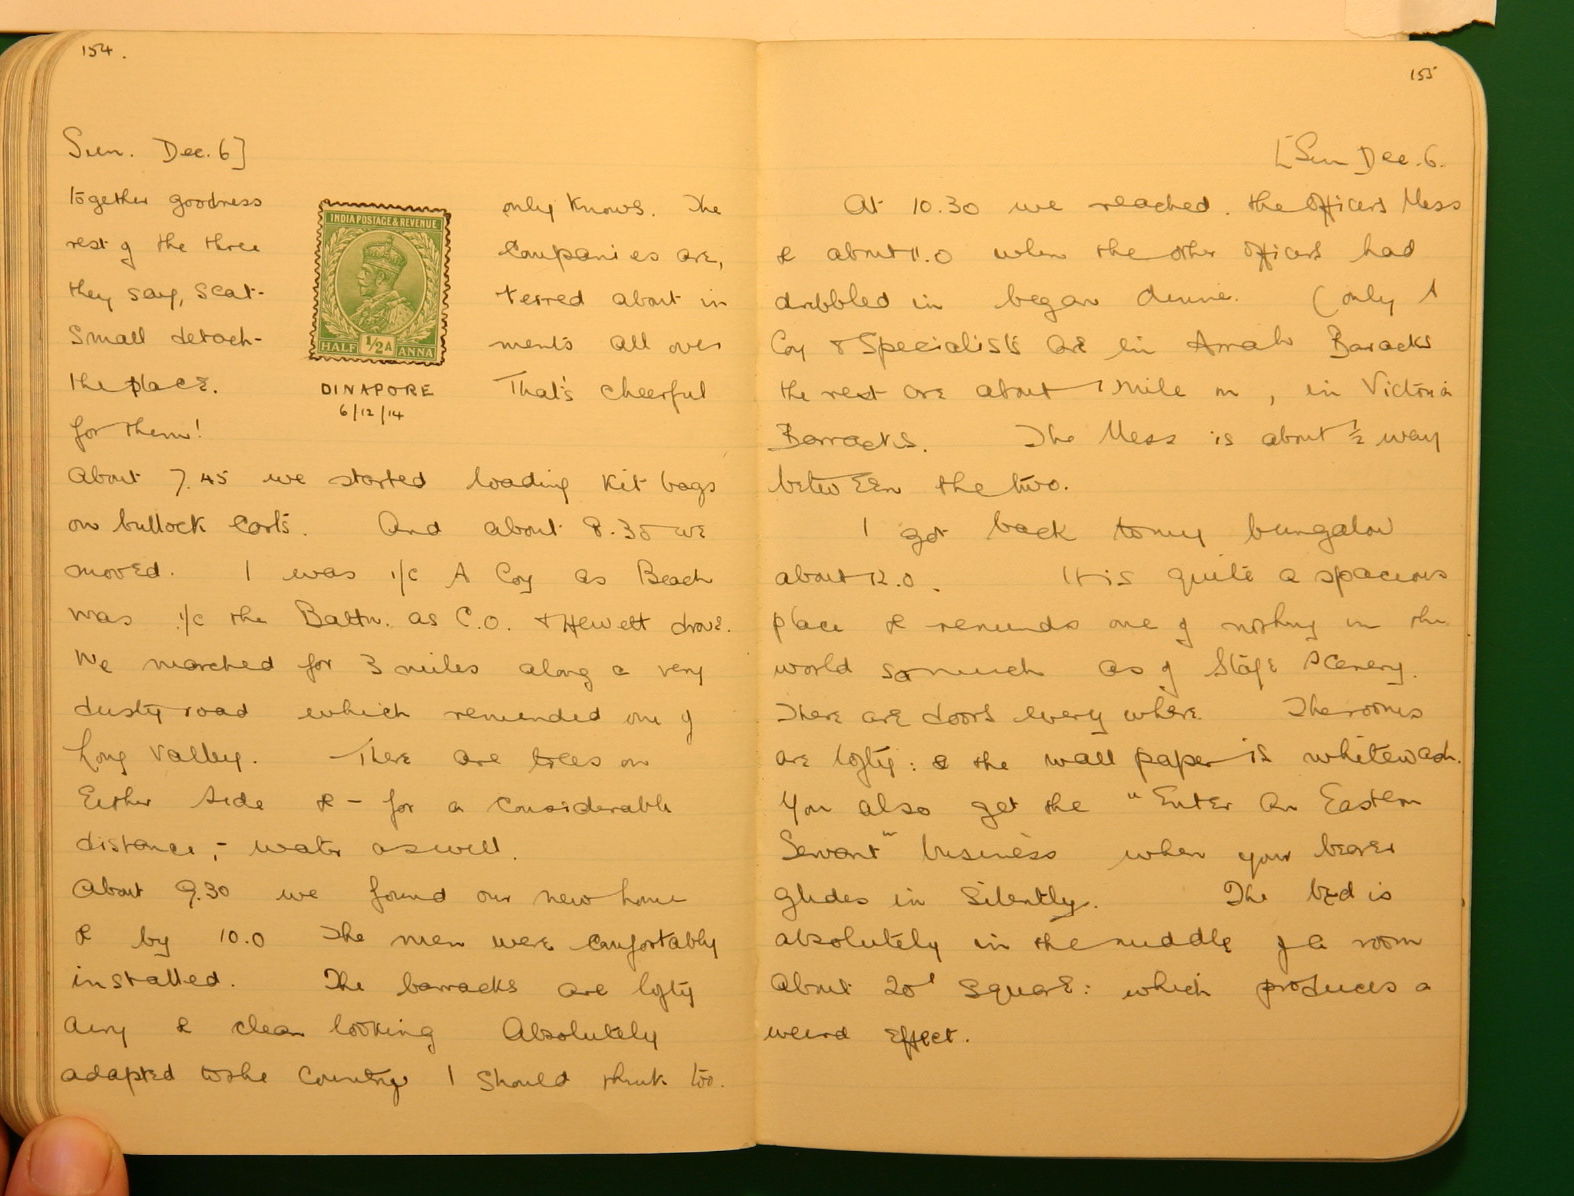 154.
Sun. Dec. 6]
together goodness only knows. The
rest of the three Companies are,
they say, scat- terred about in
small detach- ments all over
the place. That's cheerful
for them!
INDIA POSTAGE & REVENUE
HALF 1/2A ANNA
DINAPORE
6/12/14
About 7.45 we started loading kit bags
on bullock carts. And about 8.35 we
moved. I was i/c A Coy as Beach
was i/c the Battn. as C.O. & Hewett drove.
We marched for 3 miles along a very
dusty road which reminded one of
Long Valley. There are trees on
Either side & - for a considerable
distance, - water as well.
About 9.30 we found our new home
& by 10.0 The men were comfortably
installed. The barracks are lofty
airy & clean looking Absolutely
adapted to the Country I should think too.
155
[Sun Dec. 6.
At 10.30 we reached. the officers Mess
& about 11.0 when the other officers had
dribbled in began dinner. (only A
Coy & Specialists are in Arrah Baracks
the rest are about 1 mile on, in Victoria
Barracks. The Mess is about ½ way
between the two.
I got back to my bungalow
about 12.0. It is quite a spacious
place & reminds one of nothing in the
world so much as of stage scenery.
There are doors every where The rooms
are lofty: & the wall paper is whitewash.
You also get the "Enter an Eastern
Servant" business when your bearer
glides in silently. The bed is
absolutely in the middle of a room
about 20' square: which produces a
weird effect.